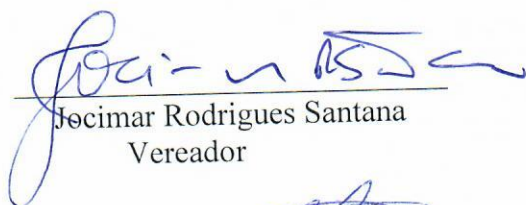 Jocimar Rodrigues Santana
Vereador